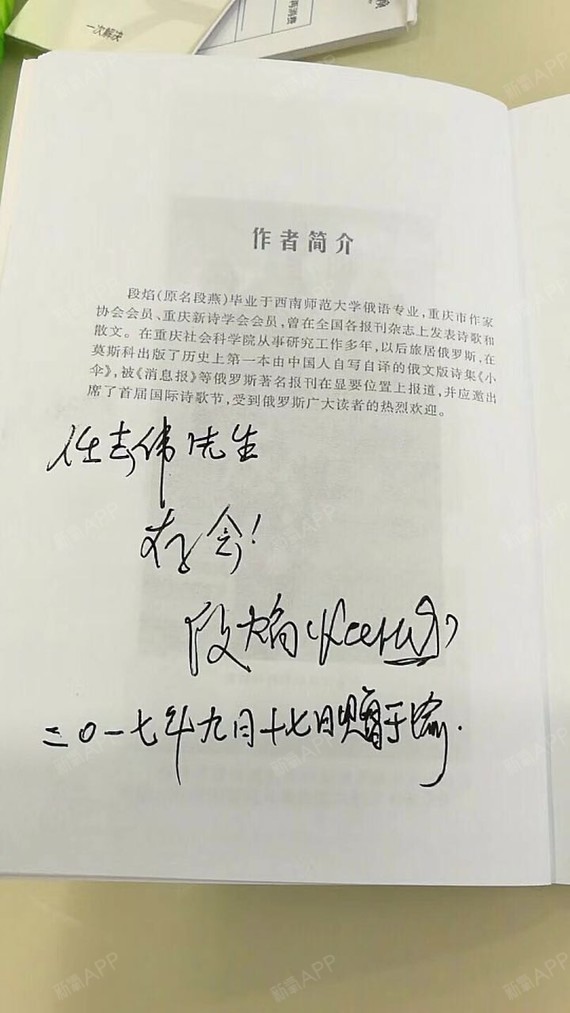 一次解决
再消费
作者简介
段焰(原名段燕)毕业于西南师范大学俄语专业,重庆市作家
协会会员、重庆新诗学会会员,曾在全国各报刊杂志上发表诗歌和
散文。在重庆社会科学院从事研究工作多年,以后旅居俄罗斯,在
莫斯科出版了历史上第一本由中国人自写自译的俄文版诗集《小
伞》,被《消息报》等俄罗斯著名报刊在显要位置上报道,并应邀出
席了首届国际诗歌节,受到俄罗斯广大读者的热烈欢迎。
任志伟先生
存念!
段焰(Ксения)
二〇一七年九月十七日赠于渝.
新氧APP
新氧APP
新氧APP
新氧APP